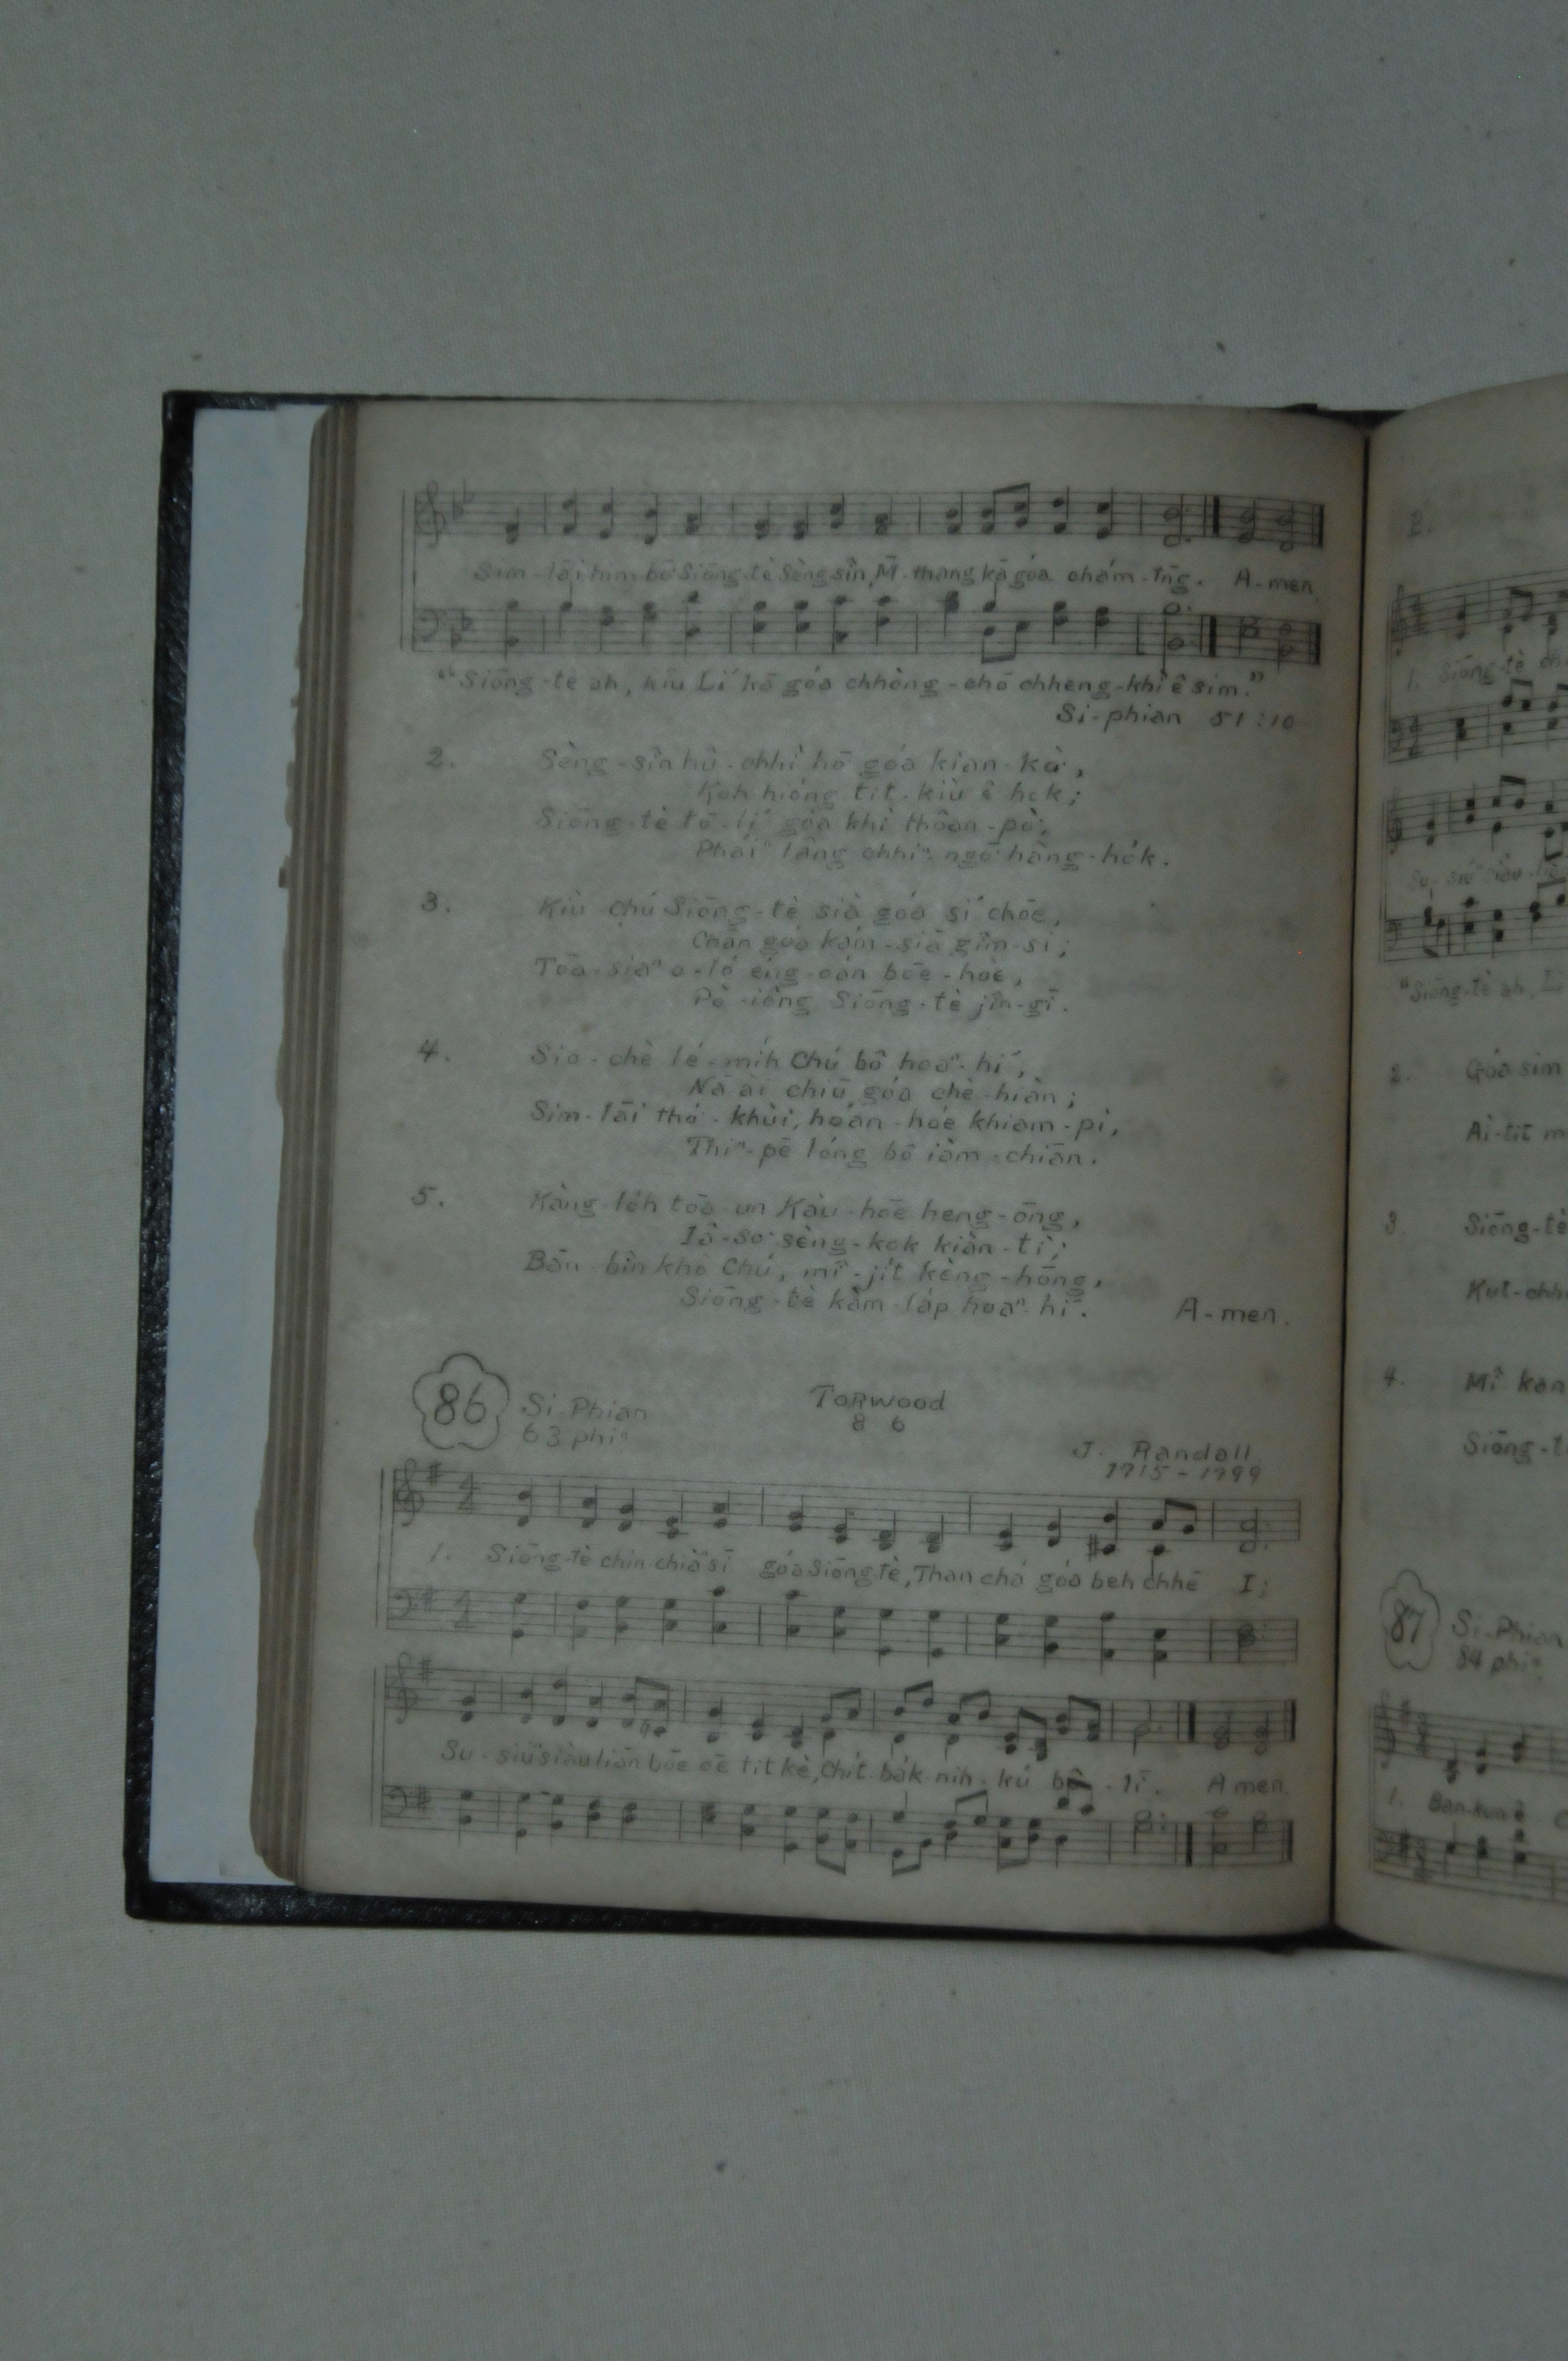 Sim-lāi him bō Siōng-tè Sèng sîn, M̄-thang kā góa chám-tn̄g. A-men.
"Siōng-tè ah, kiû Lí kā góa chhòng-chō chheng-khì ê sim."
Si-phian 51:10
2. Sèng-sîn hû-chhî hō͘ góa kian-kò͘,
Koh hióng tit-kiù ê hok;
Siōng-tè tō-lí góa khì thôan-pò͘,
Pháiⁿ lâng chhiⁿ-ngō͘ hâng-ho̍k.
3. Kiù Chú Siōng-tè sià góa sí chōe,
Chān góa kám-siā gîm-si;
Tōa-siaⁿ o-ló éng-oán bōe-hòe,
Pò-iông Siōng-tè jîn-gī.
4. Sio-chè lé-mi̍h Chú bô hoaⁿ-hí,
Nā ài chiū góa chè-hiàn;
Sim-lāi thó͘-khùi, hoán-hóe khiam-pi,
Thiⁿ-pē lóng bô iàm-chiān.
5. Kàng-lo̍h tōa-un Kàu-hōe heng-ōng,
Iâ-so͘ sèng-kok kiàn-tì;
Bān-bîn khò Chú, mî-ji̍t kèng-hōng,
Siōng-tè kàm-la̍p hoaⁿ-hí. A-men.
86 Si-Phian TORWOOD
63 phiⁿ 8 6
J. Randall
1715-1799
1. Siōng-tè chin-chiàⁿ sī góa Siōng tè, Thàn chá góa beh chhē I;
Su-siūⁿ siàu liān bōe oē tit kè, Chi̍t ba̍k-nih-kú bô-lī. A men.
2.
1. Siōng-tè
Su-siūⁿ siàu-
"Siōng-tè ah,
2. Góa sim
Ài-tit
3. Siōng-tè
4. Mî
Siōng-
87 Si-Phian
84 phiⁿ
1. Bān-kun ê